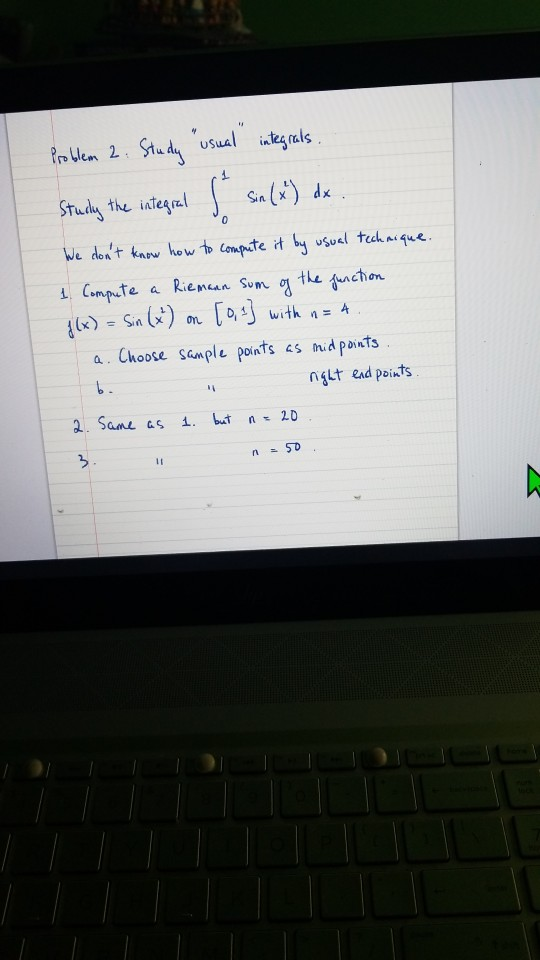 Problem 2: Study "usual" integrals.
Study the integral ∫₀¹ sin(x²) dx.
We don't know how to compute it by usual technique.
1. Compute a Riemann sum of the function
f(x) = Sin(x²) on [0,1] with n = 4.
a. Choose sample points as midpoints.
b. " right endpoints.
2. Same as 1. but n = 20.
3. " n = 50.